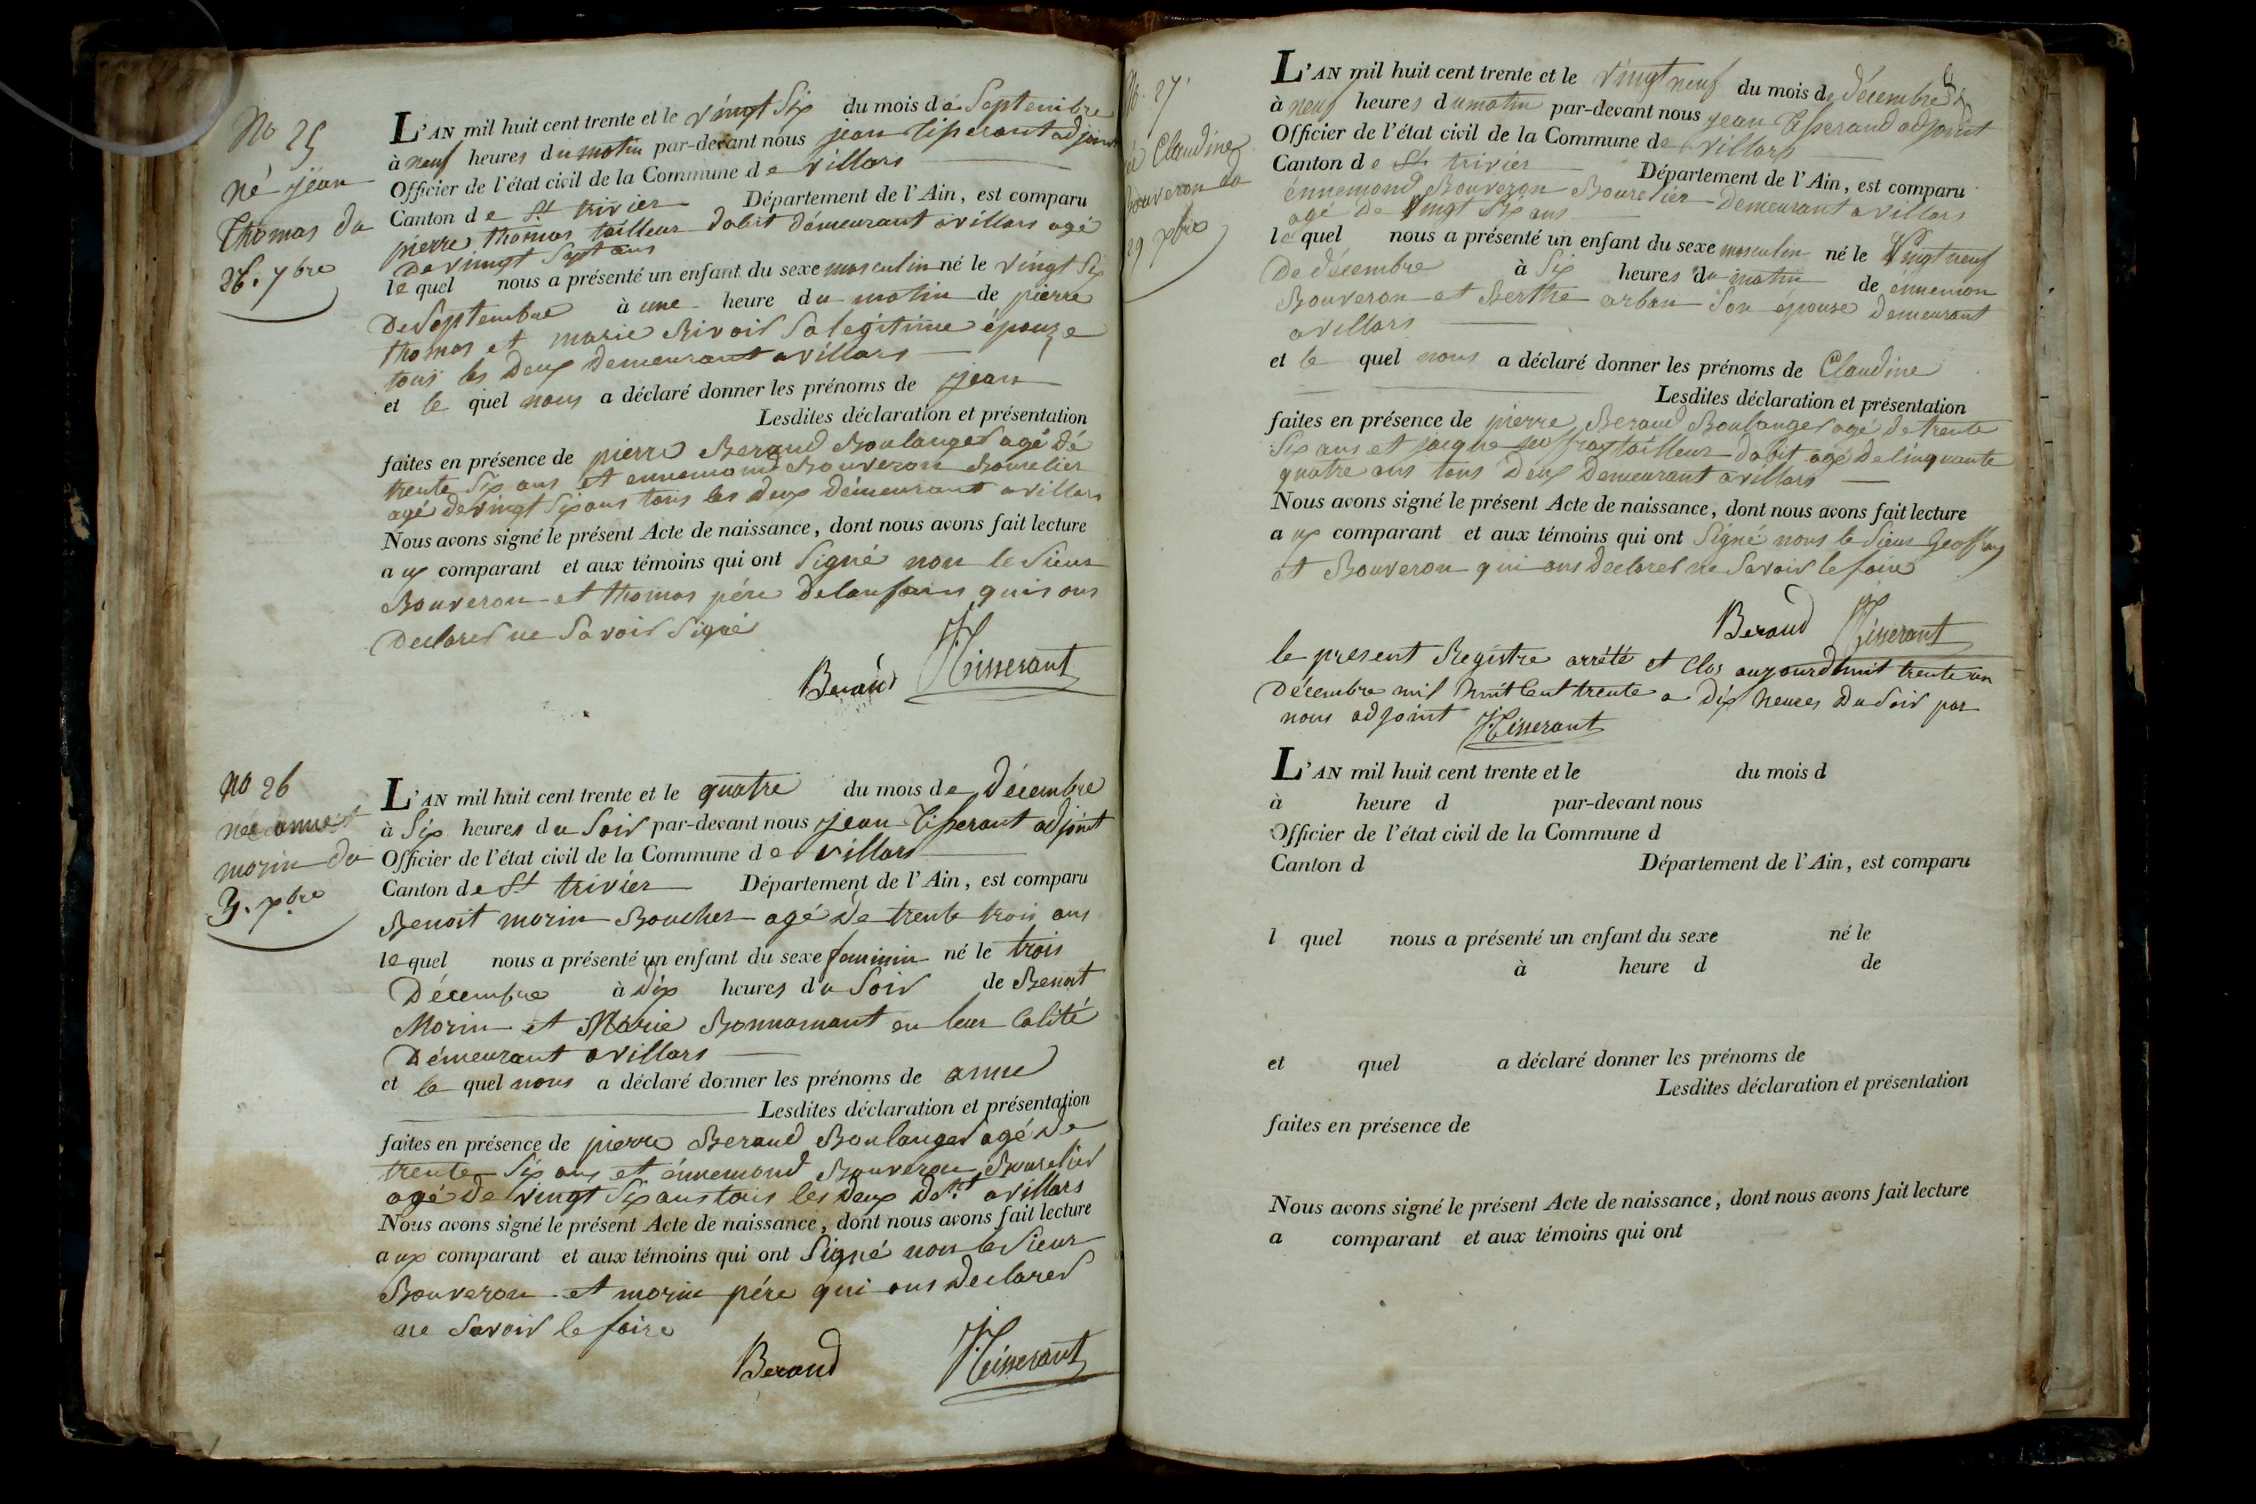 No 25
né jean
Thomas du
26. 7bre
L'AN mil huit cent trente et le vingt Six du mois de Septembre
à neuf heures du matin par-devant nous jean tisserant adjoint
Officier de l'état civil de la Commune de villars
Canton de St trivier Département de l'Ain, est comparu
pierre thomas tailleur dabit démeurant avillars agé
De vingt Sept ans
lequel nous a présenté un enfant du sexe masculin né le vingt Six
De Septembre à une heure du matin de pierre
thomas et marie Rivoir Sa legitime épouze
tous les Deux demeurant avillars
et le quel nous a déclaré donner les prénoms de jean
Lesdites déclaration et présentation
faites en présence de pierre Beraud Boulanger agé dé
trente Six ans et ennemond Bouveron Bourelier
agé de vingt Six ans tous les deux démeurant avillars
Nous avons signé le présent Acte de naissance, dont nous avons fait lecture
aux comparant et aux témoins qui ont Signé non le Sieur
Bouveron et thomas pére qui ons
Declarer ne Savoir Signé
Beraud JTisserant
no 26
née anne
morin du
3. xbre
L'AN mil huit cent trente et le quatre du mois de Décembre
à Six heures du Soir par-devant nous jean Tisserant adjoint
Officier de l'état civil de la Commune de villars
Canton de St trivier Département de l'Ain, est comparu
Benoit morin Boucher agé de trente trois ans
lequel nous a présenté un enfant du sexe feminin né le trois
Décembre à Dix heures du Soir de Benoit
Morin et Marie Bonnamant en leur Calité
Démeurant avillars
et le quel nous a déclaré donner les prénoms de anne
Lesdites déclaration et présentation
faites en présence de pierre Beraud Boulanger agé de
trente Six ans et énnemond Bouveron Bourelier
agé de vingt Six ans tous les deux Dt avillars
Nous avons signé le présent Acte de naissance, dont nous avons fait lecture
aux comparant et aux témoins qui ont Signé non le Sieur
Bouveron et morin pére qui ons declarer
ne Savoir le faire
Beraud JTisserant
No. 27.
Claudine
Bouveron du
29 xbre
L'AN mil huit cent trente et le vingt neuf du mois de décembre
à neuf heures du matin par-devant nous jean Tisserand adjoint
Officier de l'état civil de la Commune de villars
Canton de St trivier Département de l'Ain, est comparu
énnemond Bouveron Bourelier Demeurant avillars
agé de vingt Six ans
lequel nous a présenté un enfant du sexe masculin né le Vingt neuf
De décembre à Six heures du matin de ennemon
Bouveron et Berthe arban Son épouse demeurant
avillars
et le quel nous a déclaré donner les prénoms de Claudine
Lesdites déclaration et présentation
faites en présence de pierre Beraud Boulanger agé de trente
Six ans et tailleur dabit agé de Cinquante
quatre ans tous Deux Demeurant avillars
Nous avons signé le présent Acte de naissance, dont nous avons fait lecture
aux comparant et aux témoins qui ont Signé nons le Sieur Geoffray
et Bouveron qui ons declarer ne Savoir le faire
Beraud JTisserant
le present Registre arrété et Clos aujourdhuit trente un
Décembre mil huit Cent trente a Dix heures Du Soir par
nous adjoint JTisserant
L'AN mil huit cent trente et le du mois d
à heure d par-devant nous
Officier de l'état civil de la Commune d
Canton d Département de l'Ain, est comparu
l quel nous a présenté un enfant du sexe né le
à heure d de
et quel a déclaré donner les prénoms de
Lesdites déclaration et présentation
faites en présence de
Nous avons signé le présent Acte de naissance, dont nous avons fait lecture
a comparant et aux témoins qui ont